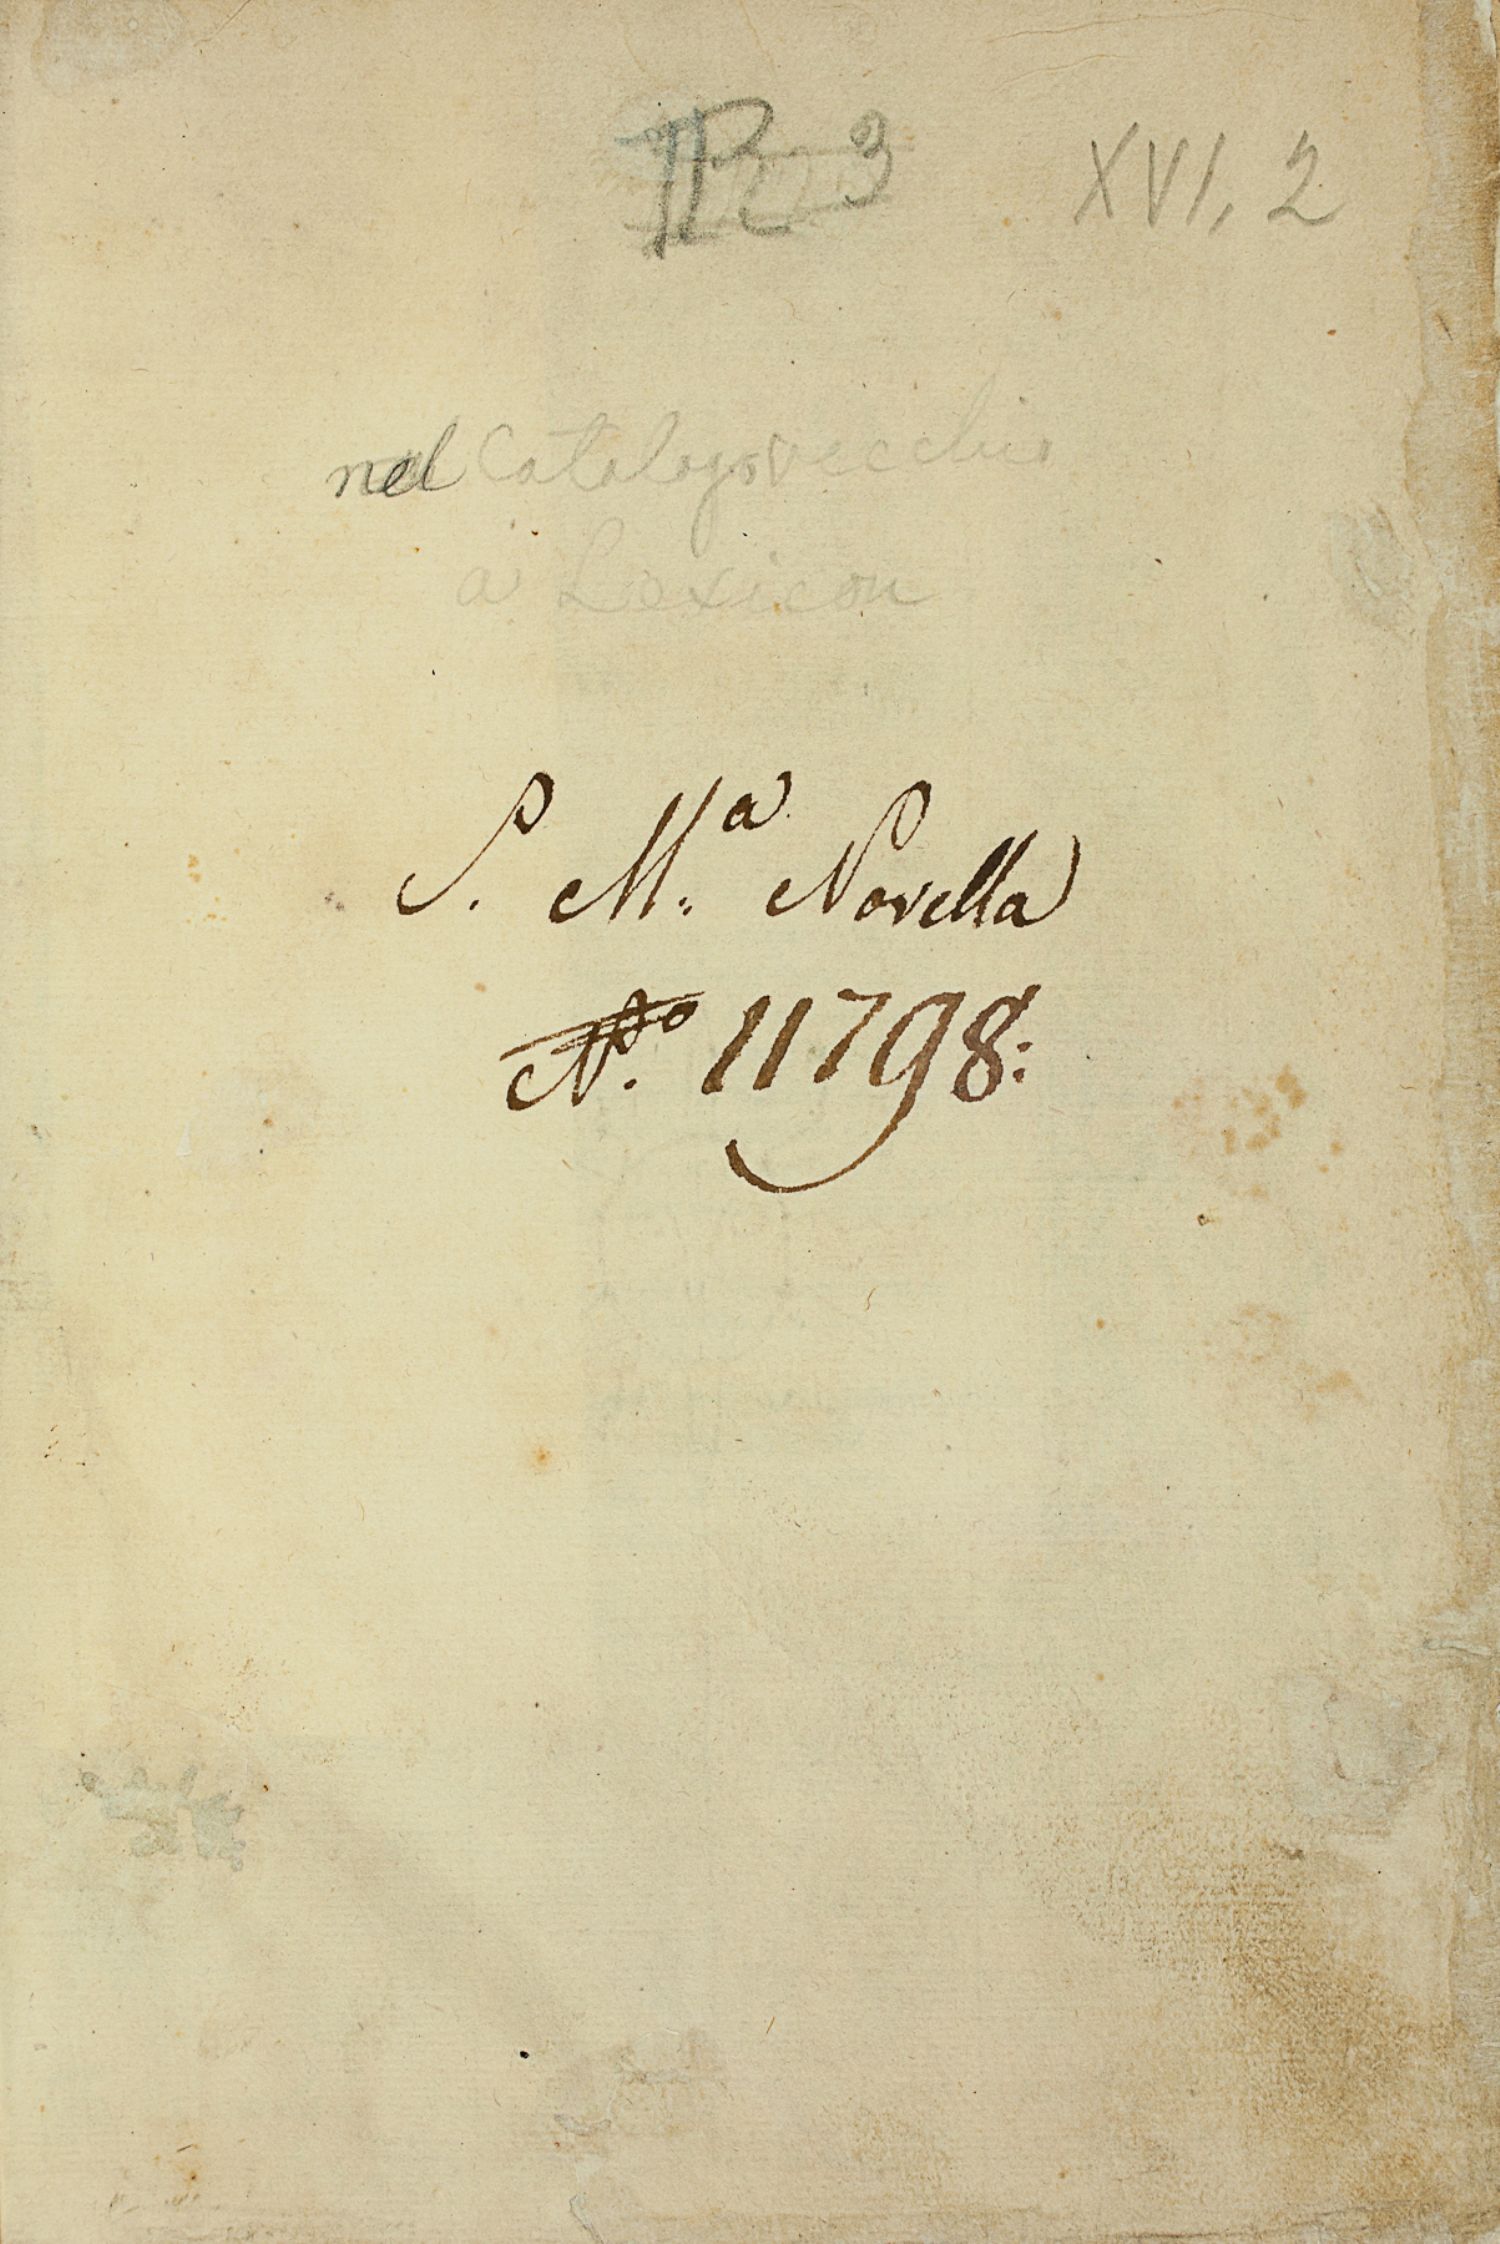 3 XVI, 2
nel Catalogo vecchio
a Lexicon
S. M.ª Novella
Nº. 11798: